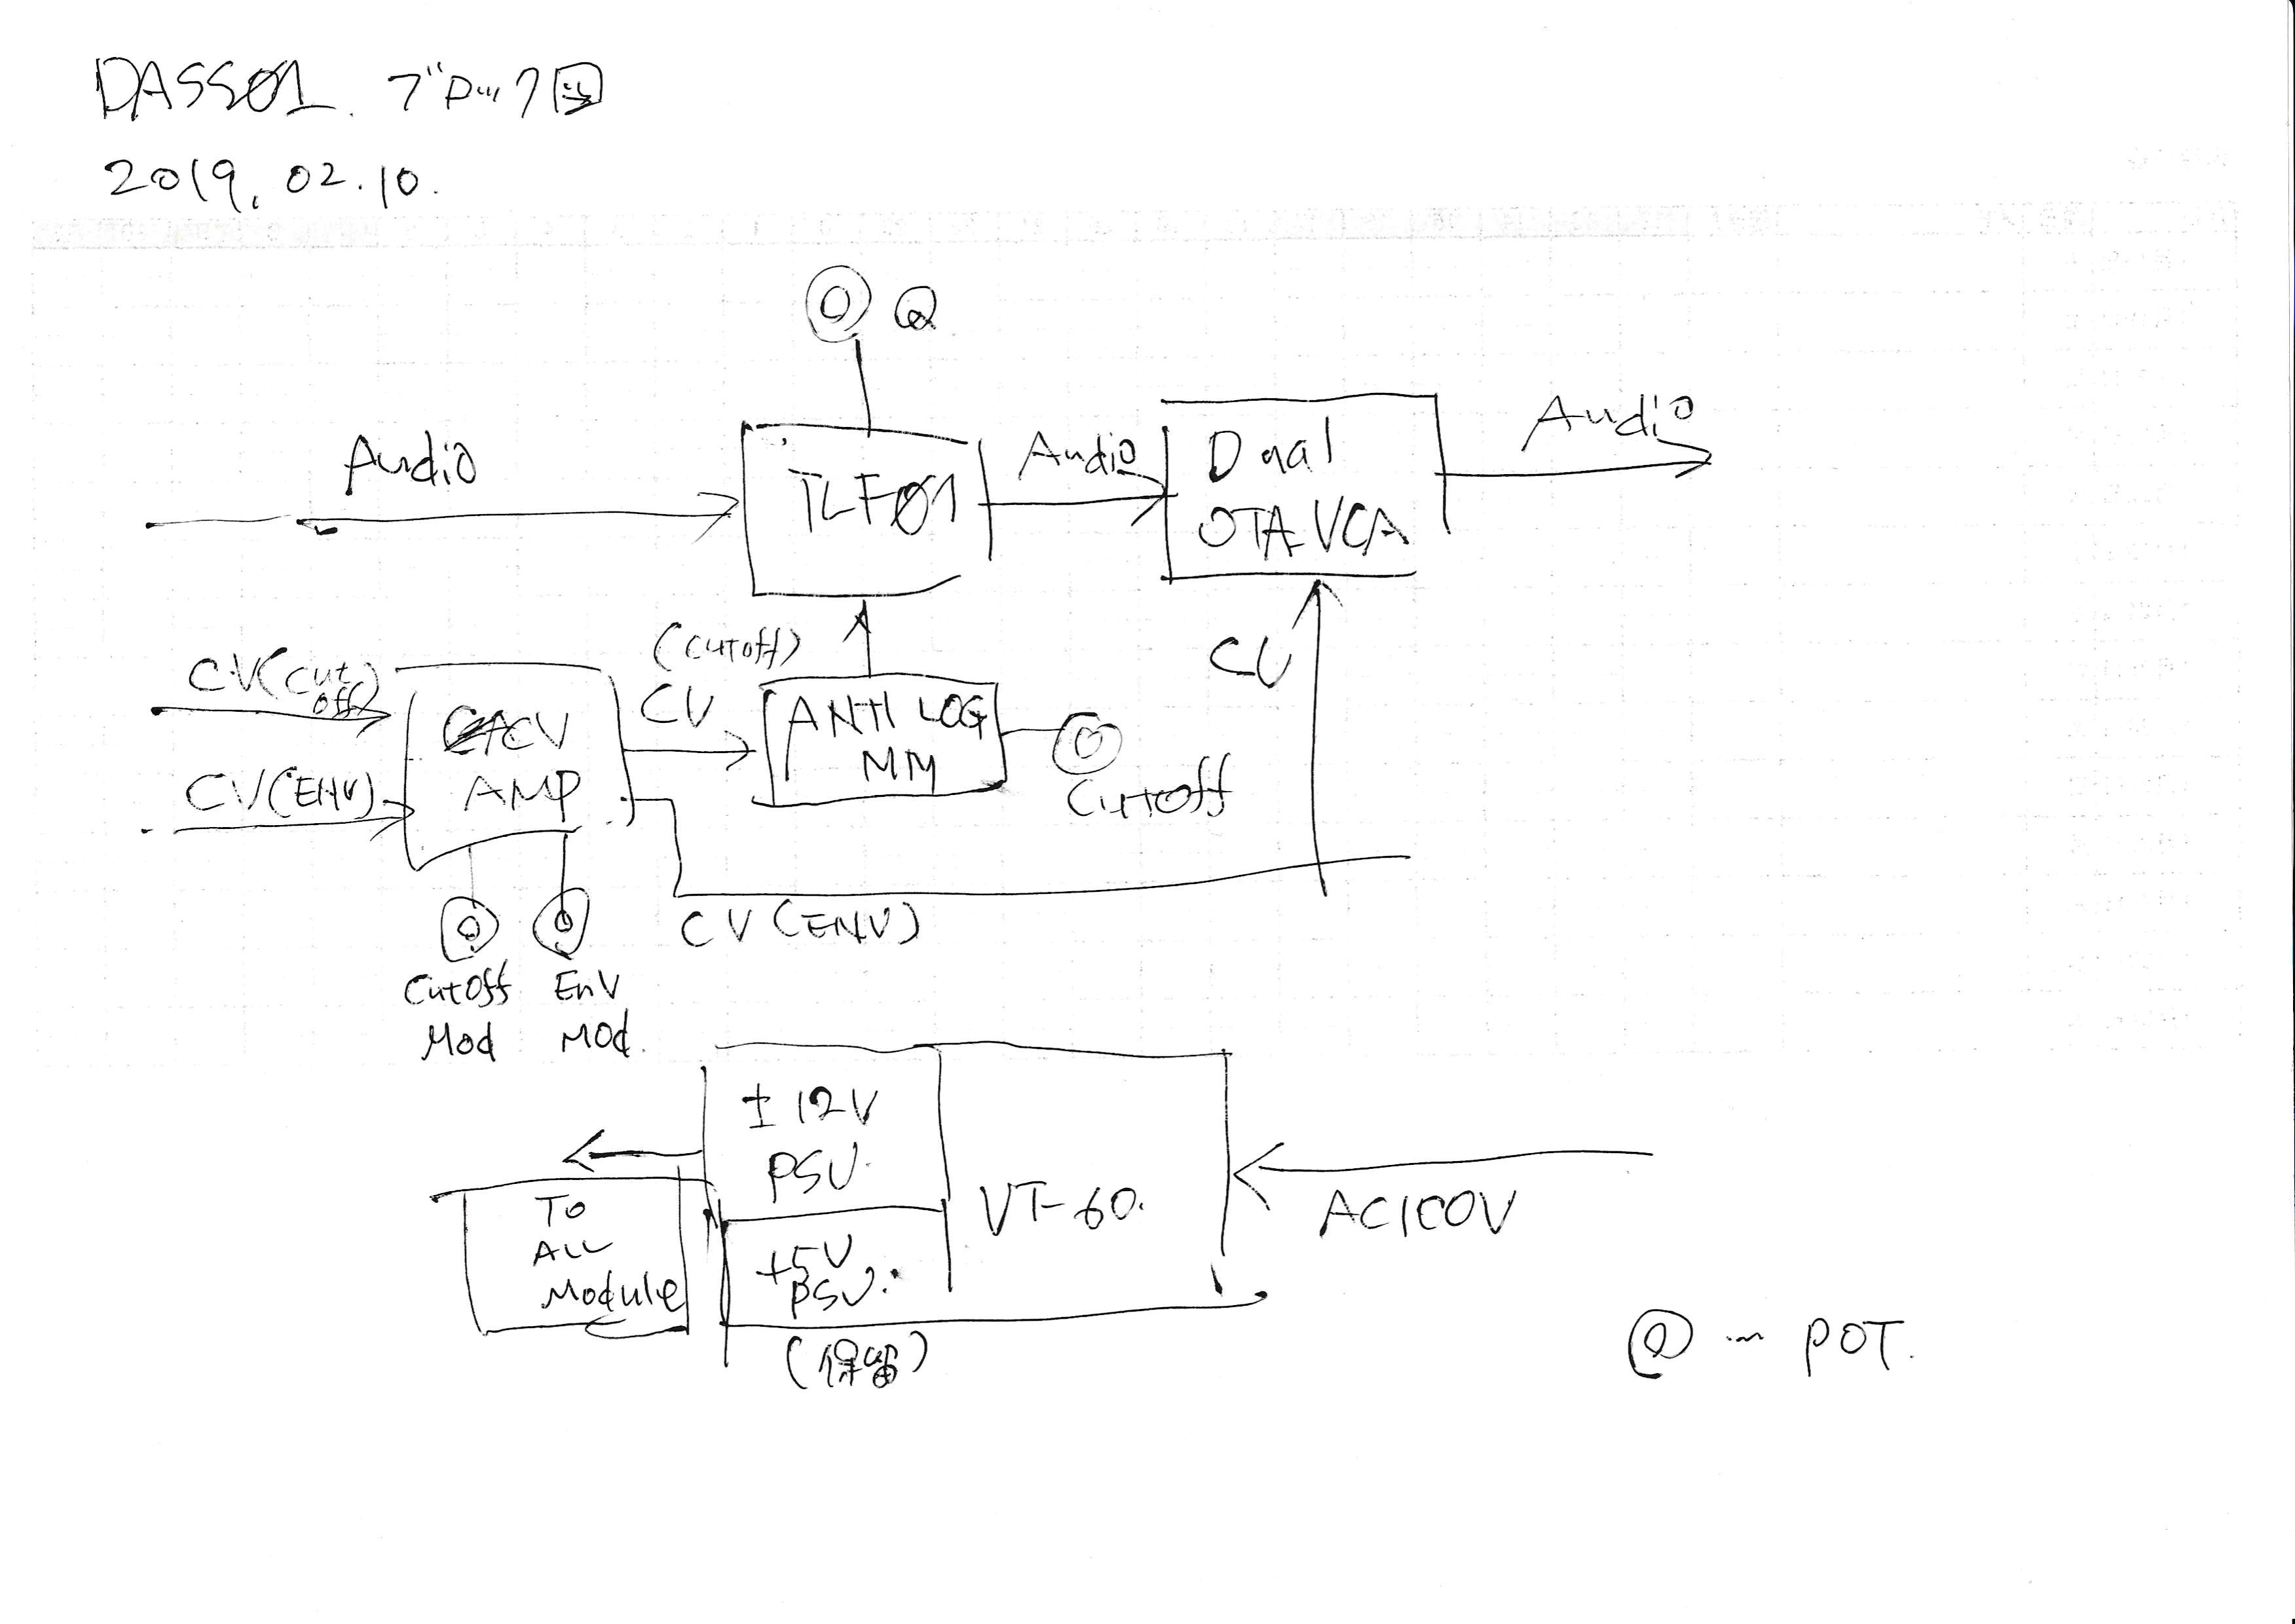 DASS01. ブロック図
2019.02.10.
Q
Audio
TLF01
Audio
Dual
OTA VCA
Audio
CV(cut
off)
CV(ENV)
CV
AMP
(cutoff)
CV
ANTI LOG
MM
Cutoff
CV
CV(ENV)
Cutoff
Mod
Env
Mod.
±12V
PSU.
+5V
PSU.
(保留)
VT-60.
AC100V
TO
ALL
Module
◎ … POT.